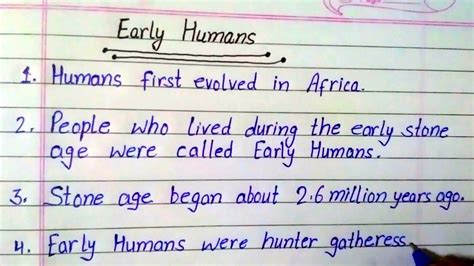 Early Humans
1. Humans first evolved in Africa.
2. People who lived during the early stone
age were called Early Humans.
3. Stone age began about 2.6 million years ago.
4. Early Humans were hunter gatheress.